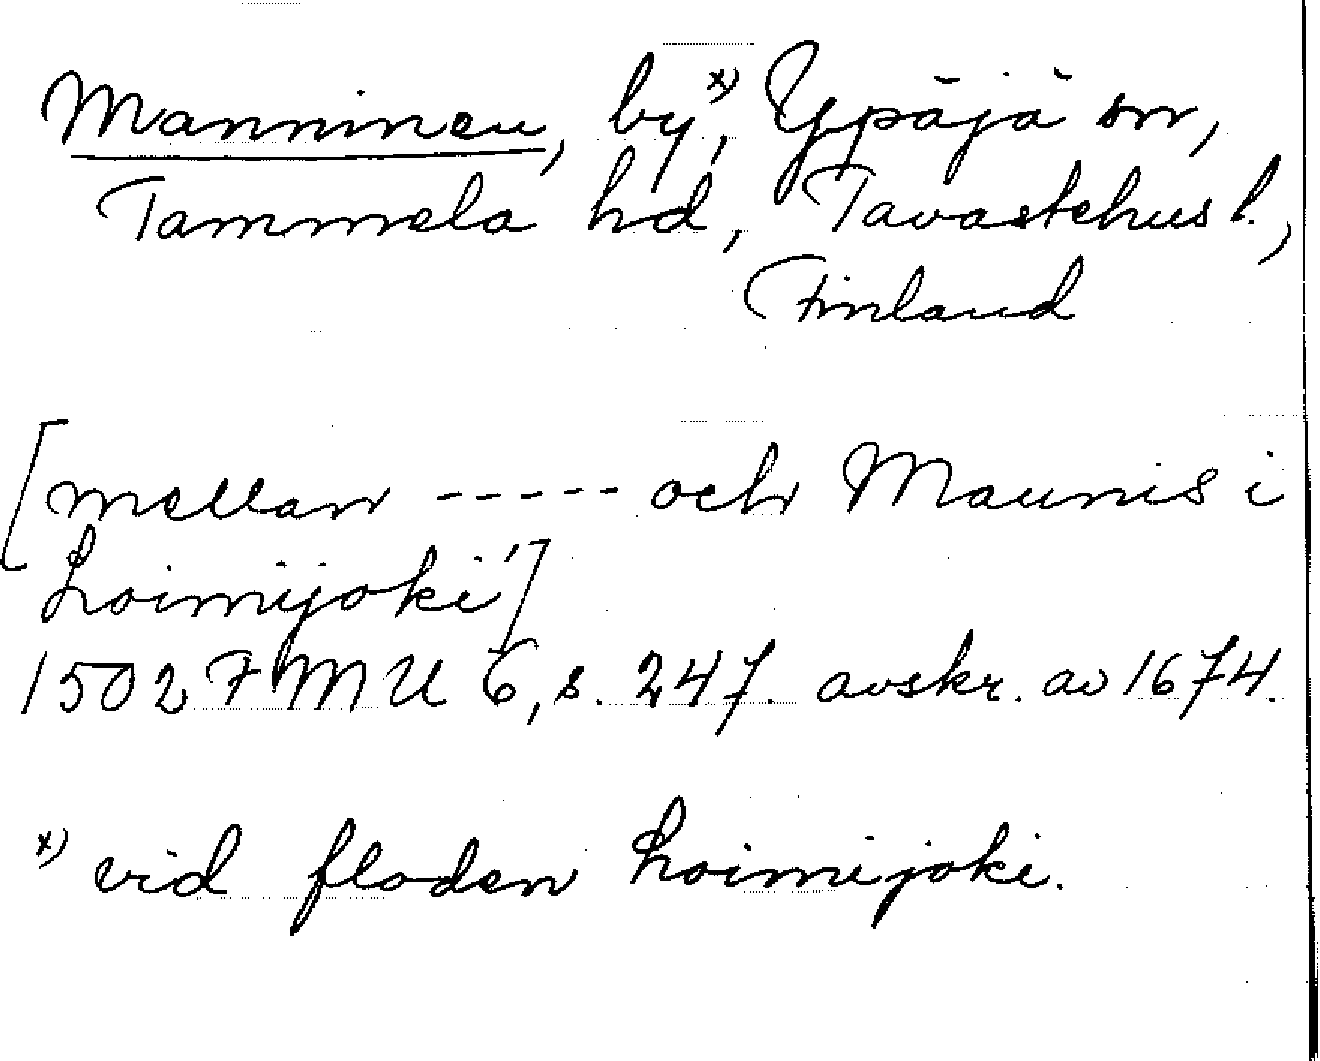 Manninen, by x), Ypäjä sn,
Tammela hd, Tavastehus l.,
Finland
[mellan ----- och Maunis i
Loimijoki']
1502 FMU 6, s. 247. avskr. av 1674.
x) vid floden Loimijoki.